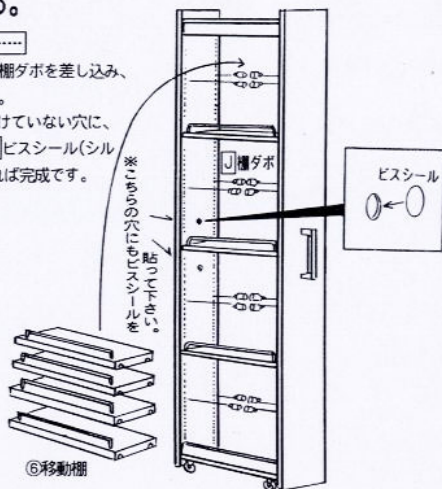 る。
棚ダボを差し込み、
。
けていない穴に、
ビスシール(シル
れば完成です。
J 棚ダボ
※こちらの穴にもビスシールを
貼って下さい。
ビスシール
⑥移動棚